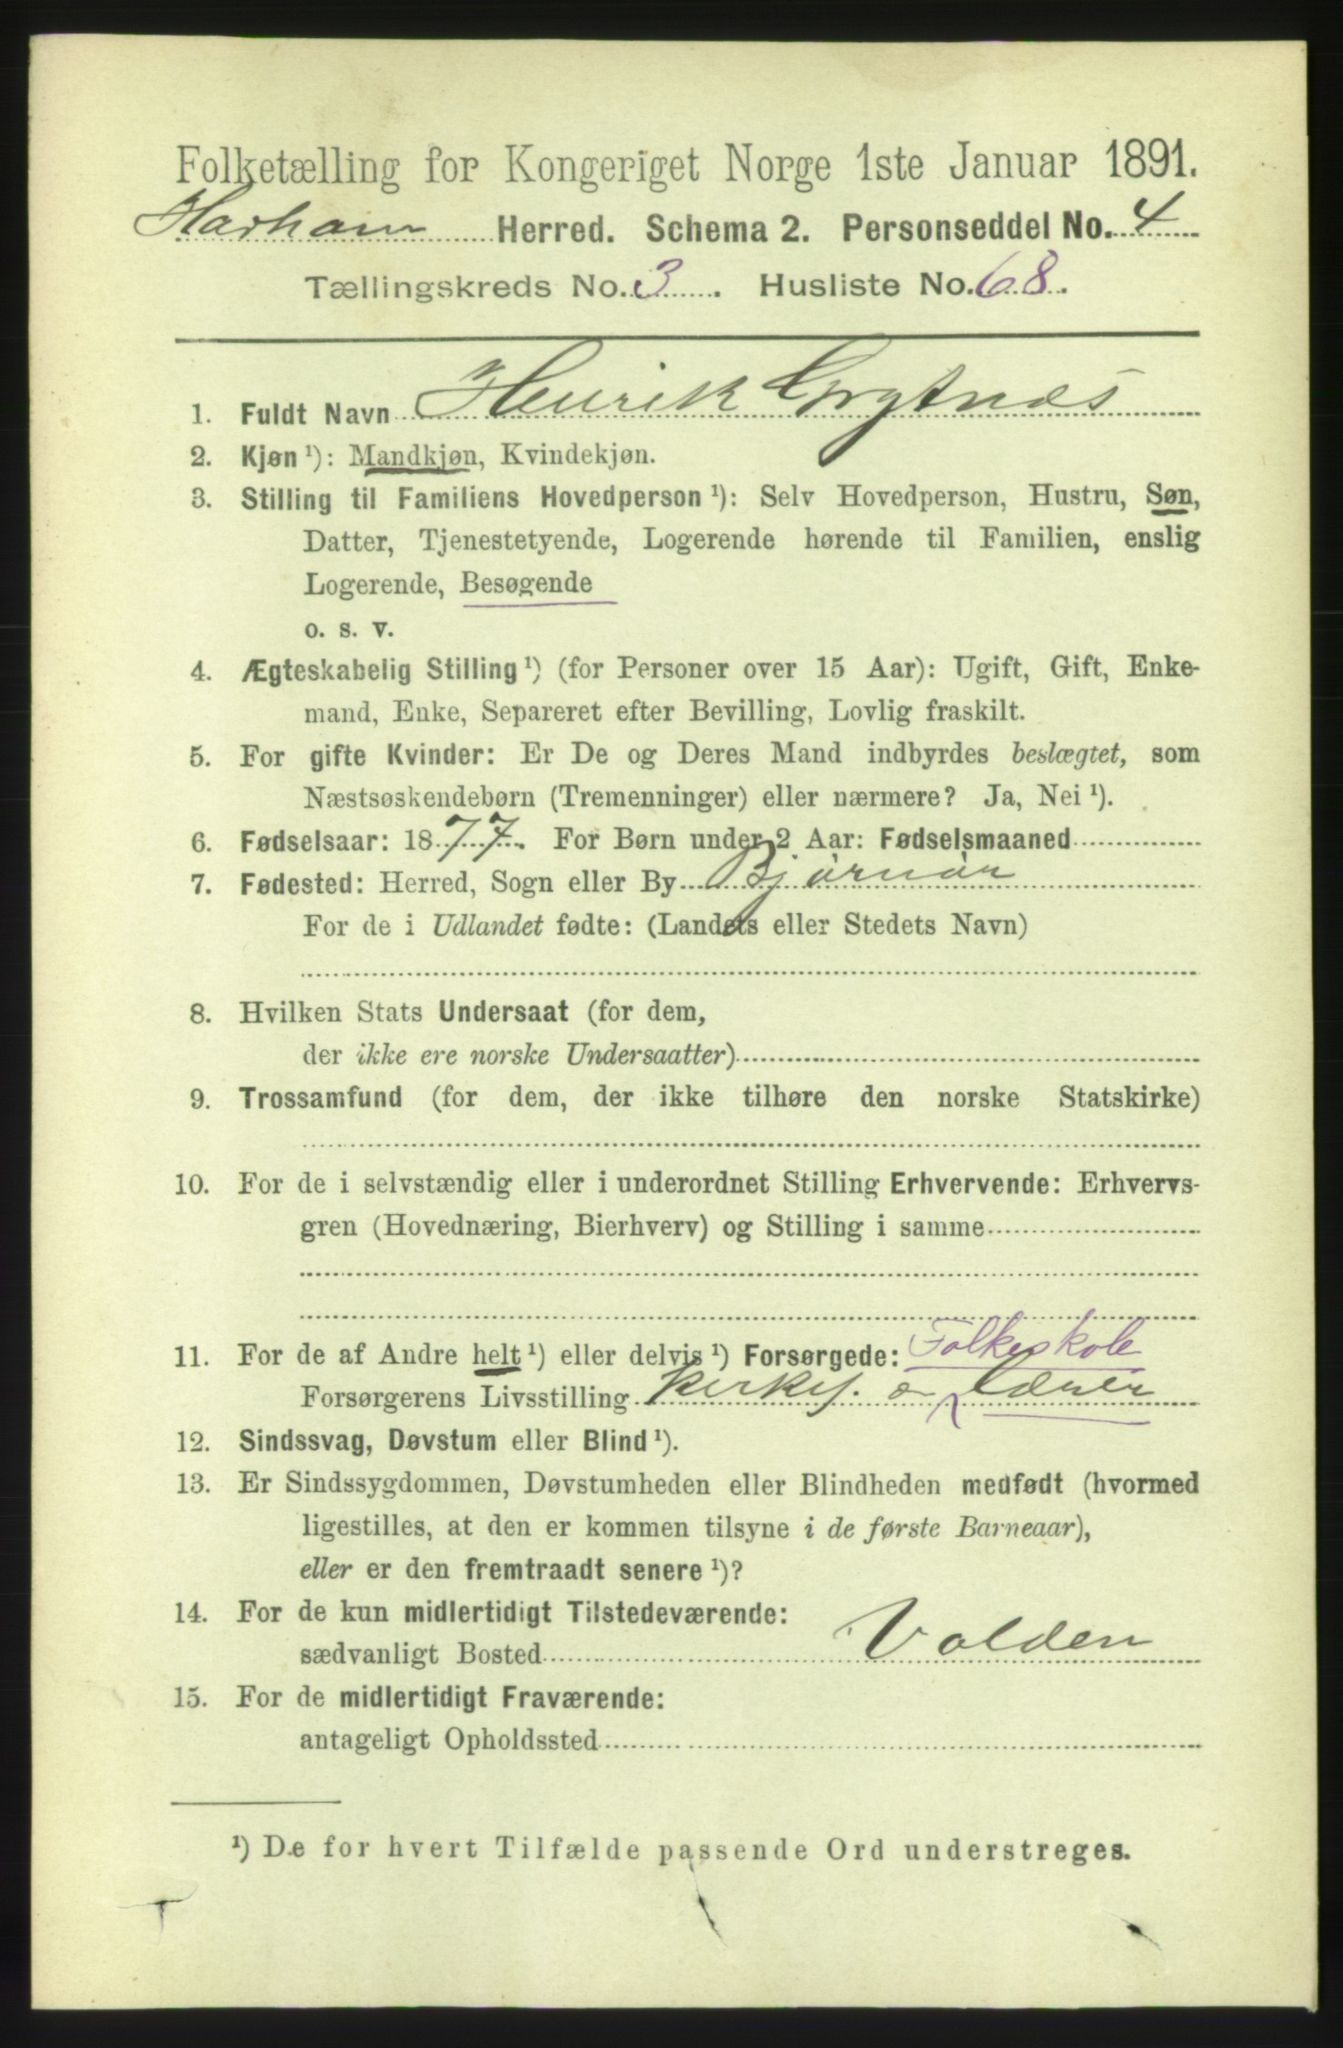 Folketælling for Kongeriget Norge 1ste Januar 1891.
Harham Herred. Schema 2. Personseddel No. 4
Tællingskreds No. 3. Husliste No. 68.
1. Fuldt Navn Henrik Grytnæs
2. Kjøn ¹): Mandkjøn, Kvindekjøn.
3. Stilling til Familiens Hovedperson ¹): Selv Hovedperson, Hustru, Søn,
Datter, Tjenestetyende, Logerende hørende til Familien, enslig
Logerende, Besøgende
o. s. v.
4. Ægteskabelig Stilling ¹) (for Personer over 15 Aar): Ugift, Gift, Enke-
mand, Enke, Separeret efter Bevilling, Lovlig fraskilt.
5. For gifte Kvinder: Er De og Deres Mand indbyrdes beslægtet, som
Næstsøskendebørn (Tremenninger) eller nærmere? Ja, Nei ¹).
6. Fødselsaar: 1877. For Børn under 2 Aar: Fødselsmaaned
7. Fødested: Herred, Sogn eller By Bjørnør
For de i Udlandet fødte: (Landets eller Stedets Navn)
8. Hvilken Stats Undersaat (for dem,
der ikke ere norske Undersaatter)
9. Trossamfund (for dem, der ikke tilhøre den norske Statskirke)
10. For de i selvstændig eller i underordnet Stilling Erhvervende: Erhvervs-
gren (Hovednæring, Bierhverv) og Stilling i samme
11. For de af Andre helt ¹) eller delvis ¹) Forsørgede: Folkeskole
Forsørgerens Livsstilling Kirkes. Lærer
12. Sindssvag, Døvstum eller Blind ¹).
13. Er Sindssygdommen, Døvstumheden eller Blindheden medfødt (hvormed
ligestilles, at den er kommen tilsyne i de første Barneaar),
eller er den fremtraadt senere ¹)?
14. For de kun midlertidigt Tilstedeværende:
sædvanligt Bosted Volden
15. For de midlertidigt Fraværende:
antageligt Opholdssted
¹) De for hvert Tilfælde passende Ord understreges.